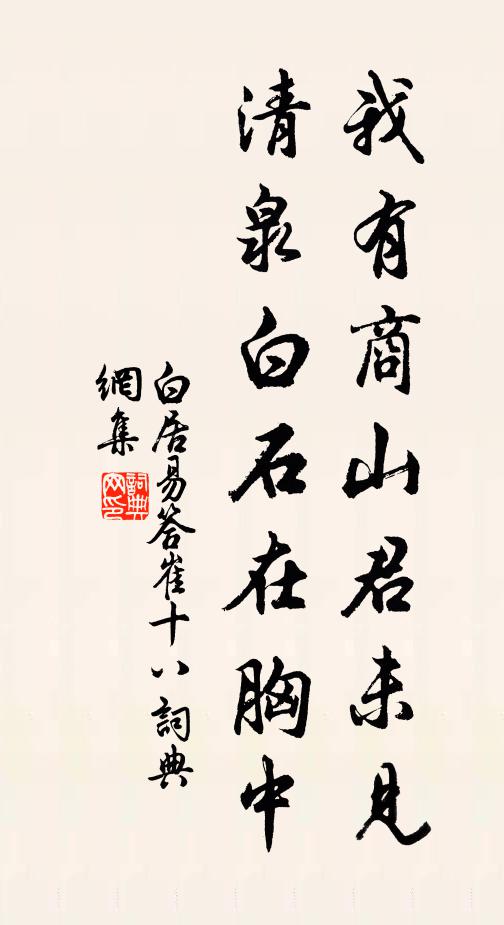 我有商山君未見
清泉白石在胸中
白居易答崔十八詞典
網集
詞典
网印